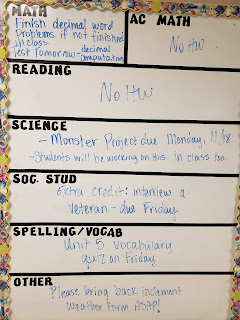 MATH
Finish decimal word
problems if not finished
in class
Test Tomorrow - decimal
computation
AC MATH
No HW
READING
No HW
SCIENCE
- Monster Project due Monday, 11/18.
- Students will be working on this in class too.
SOC. STUD
Extra credit: interview a
Veteran - due Friday
SPELLING/VOCAB
Unit 5 Vocabulary
quiz on Friday
OTHER
Please bring back inclement
Weather Form ASAP!